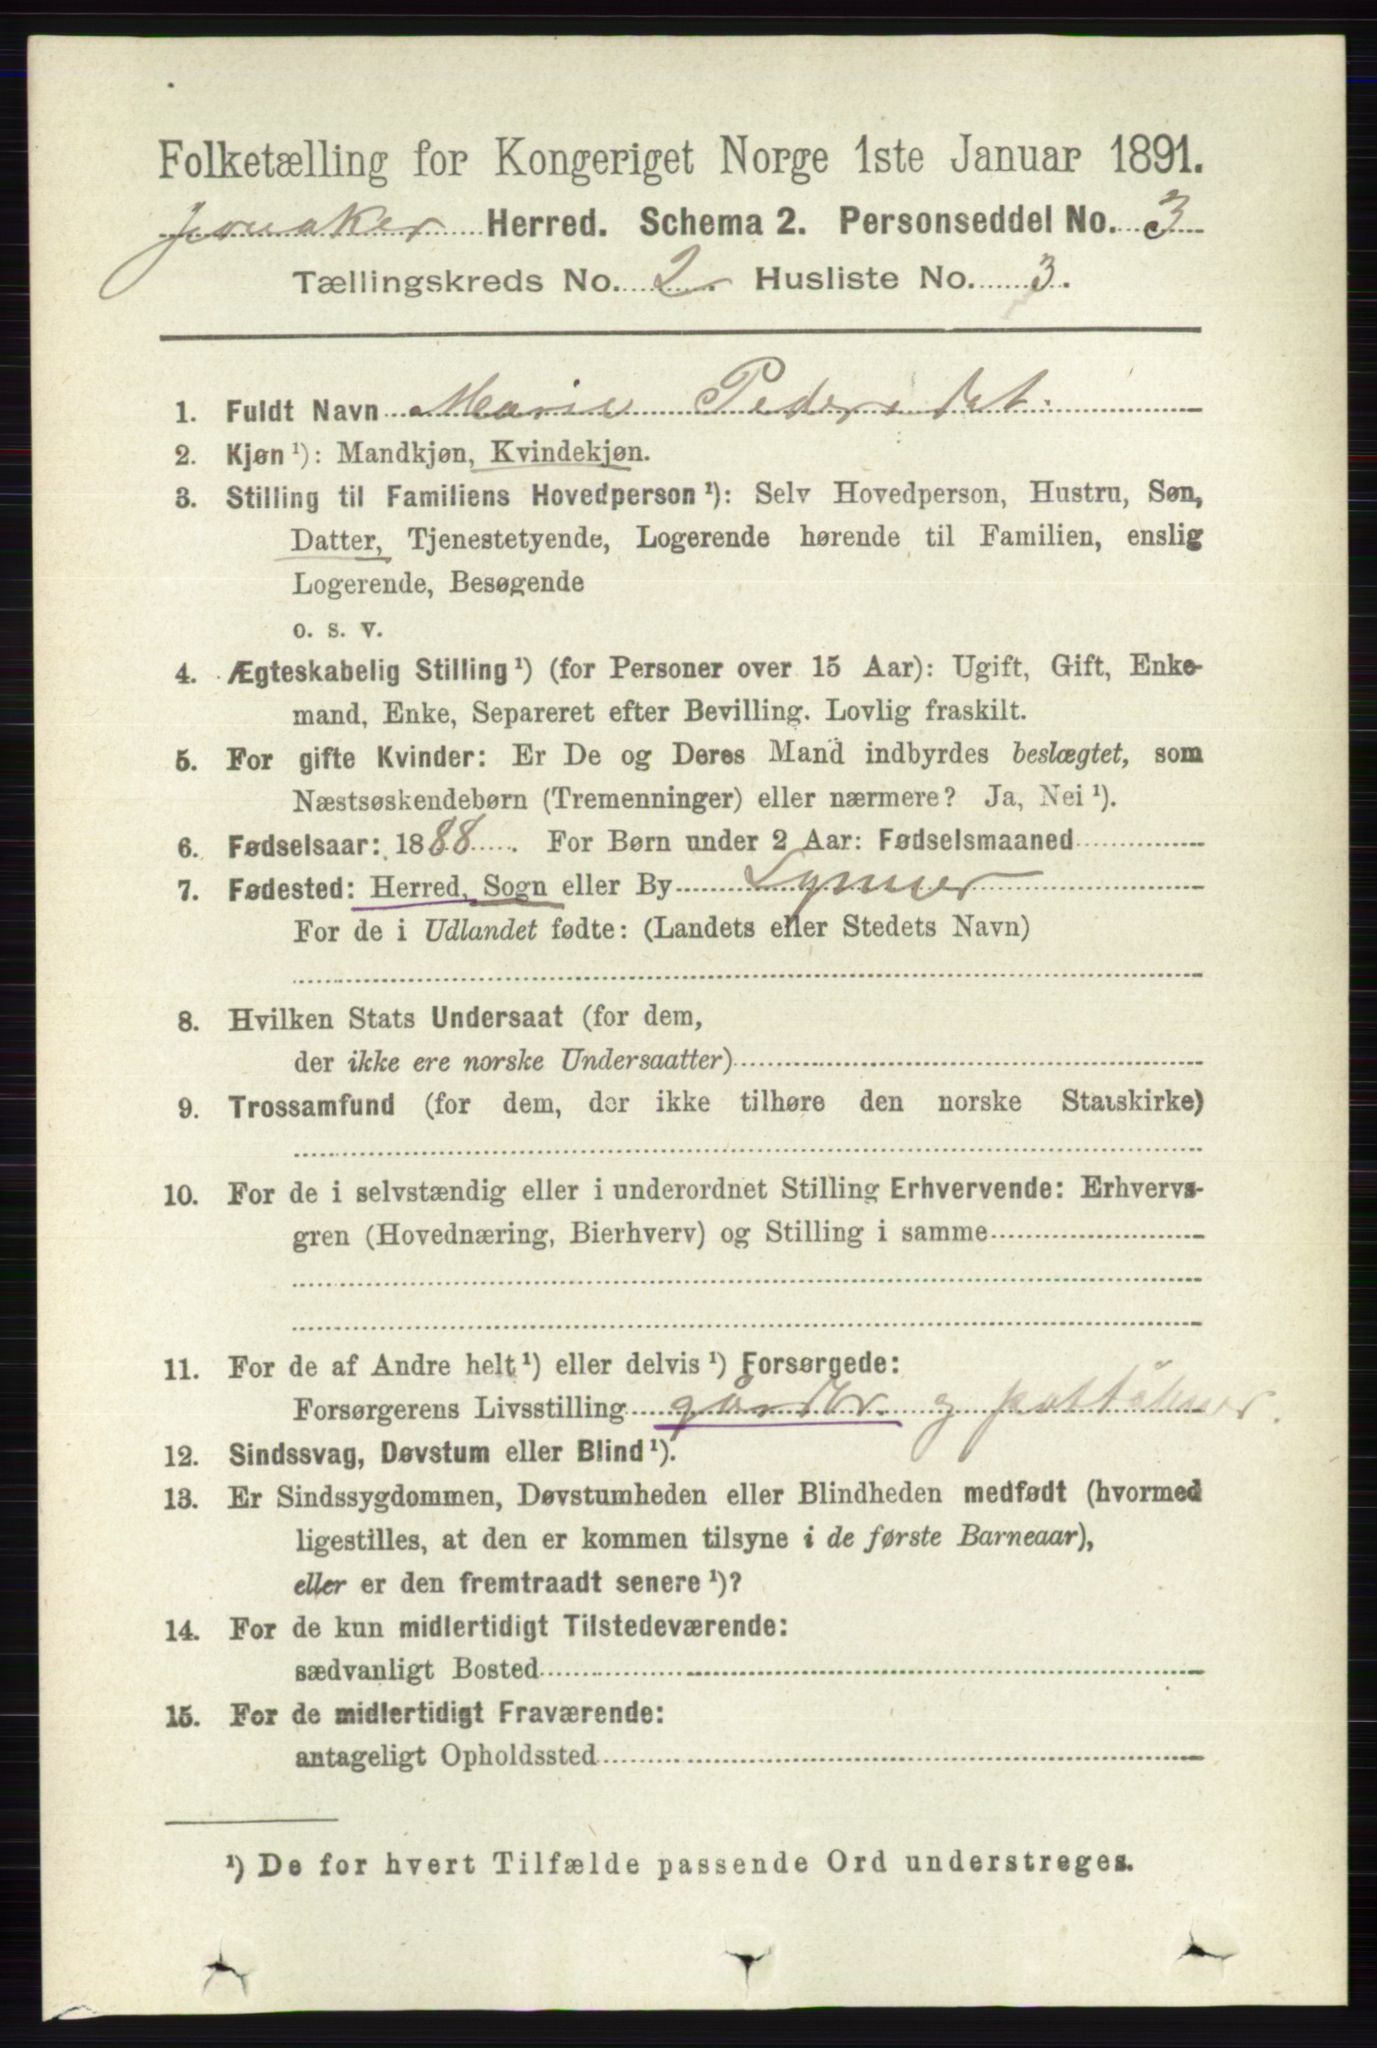 Folketælling for Kongeriget Norge 1ste Januar 1891.
Jevnaker Herred. Schema 2. Personseddel No. 3
Tællingskreds No. 2 Husliste No. 3.
1. Fuldt Navn Marie Pedersdat.
2. Kjøn¹): Mandkjøn, Kvindekjøn.
3. Stilling til Familiens Hovedperson¹): Selv Hovedperson, Hustru, Søn,
Datter, Tjenestetyende, Logerende hørende til Familien, enslig
Logerende, Besøgende
o. s. v.
4. Ægteskabelig Stilling¹) (for Personer over 15 Aar): Ugift, Gift, Enke-
mand, Enke, Separeret efter Bevilling. Lovlig fraskilt.
5. For gifte Kvinder: Er De og Deres Mand indbyrdes beslægtet, som
Næstsøskendebørn (Tremenninger) eller nærmere? Ja, Nei¹).
6. Fødselsaar: 1888. For Børn under 2 Aar: Fødselsmaaned
7. Fødested: Herred, Sogn eller By Lynner
For de i Udlandet fødte: (Landets eller Stedets Navn)
8. Hvilken Stats Undersaat (for dem,
der ikke ere norske Undersaatter)
9. Trossamfund (for dem, der ikke tilhøre den norske Statskirke)
10. For de i selvstændig eller i underordnet Stilling Erhvervende: Erhvervs-
gren (Hovednæring, Bierhverv) og Stilling i samme
11. For de af Andre helt¹) eller delvis¹) Forsørgede:
Forsørgerens Livsstilling gårdbr. og
12. Sindssvag, Døvstum eller Blind¹).
13. Er Sindssygdommen, Døvstumheden eller Blindheden medfødt (hvormed
ligestilles, at den er kommen tilsyne i de første Barneaar),
eller er den fremtraadt senere¹)?
14. For de kun midlertidigt Tilstedeværende:
sædvanligt Bosted
15. For de midlertidigt Fraværende:
antageligt Opholdssted
¹) De for hvert Tilfælde passende Ord understreges.